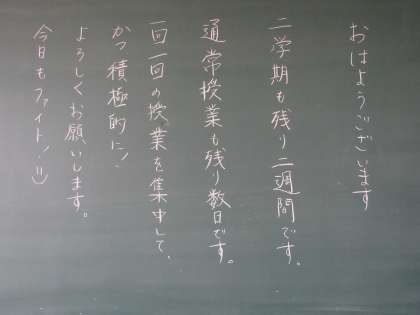 おはようございます
二学期も残り二週間です。
通常授業も残り数日です。
一回一回の授業を集中して、
かつ積極的に！
よろしくお願いします。
今日もファイト！！=)